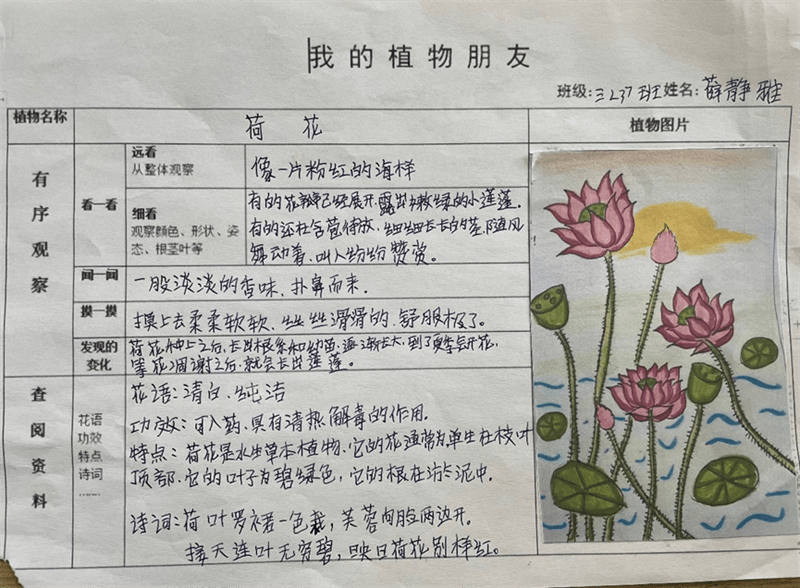 我的植物朋友
班级:三237班 姓名:薛静雅
植物名称
荷 花
植物图片
有序观察
看一看
远看
从整体观察
像一片粉红的海样
细看
观察颜色、形状、姿态、根茎叶等
有的花瓣已经展开,露出嫩绿的小莲蓬。
有的还在含苞待放、细细长长的茎,随风
舞动着、叫人纷纷赞赏。
闻一闻
一股淡淡的香味、扑鼻而来.
摸一摸
摸上去柔柔软软、丝丝滑滑的、舒服极了。
发现的变化
荷花种上之后,长出根系和幼苗,逐渐长大,到了夏季会开花,
等花凋谢之后,就会长出莲蓬。
查阅资料
花语
功效
特点
诗词
……
花语:清白、纯洁
功效:可入药、具有清热解毒的作用.
特点:荷花是水生草本植物、它的花通常为单生在枝叶
顶部、它的叶子为碧绿色,它的根在淤泥中.
诗词:荷叶罗裙一色裁,芙蓉向脸两边开.
接天连叶无穷碧,映日荷花别样红。